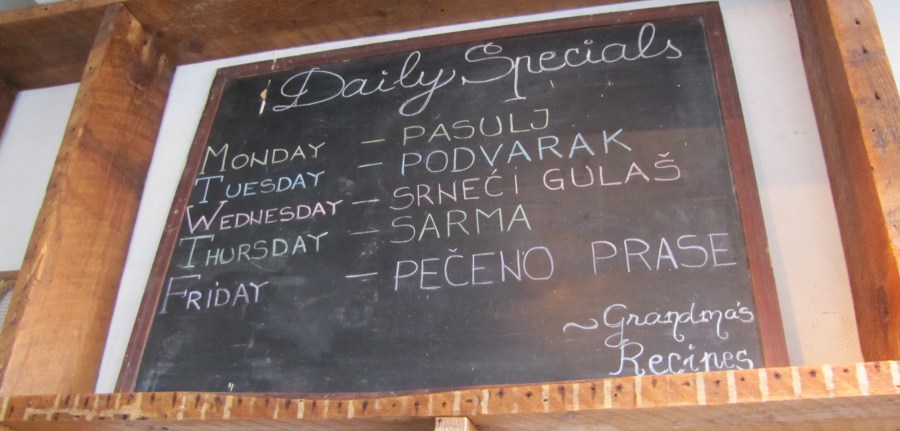 Daily Specials
MONDAY – PASULJ
TUESDAY – PODVARAK
WEDNESDAY – SRNEĆI GULAŠ
THURSDAY – SARMA
FRIDAY – PEČENO PRASE
~ Grandma's
Recipes